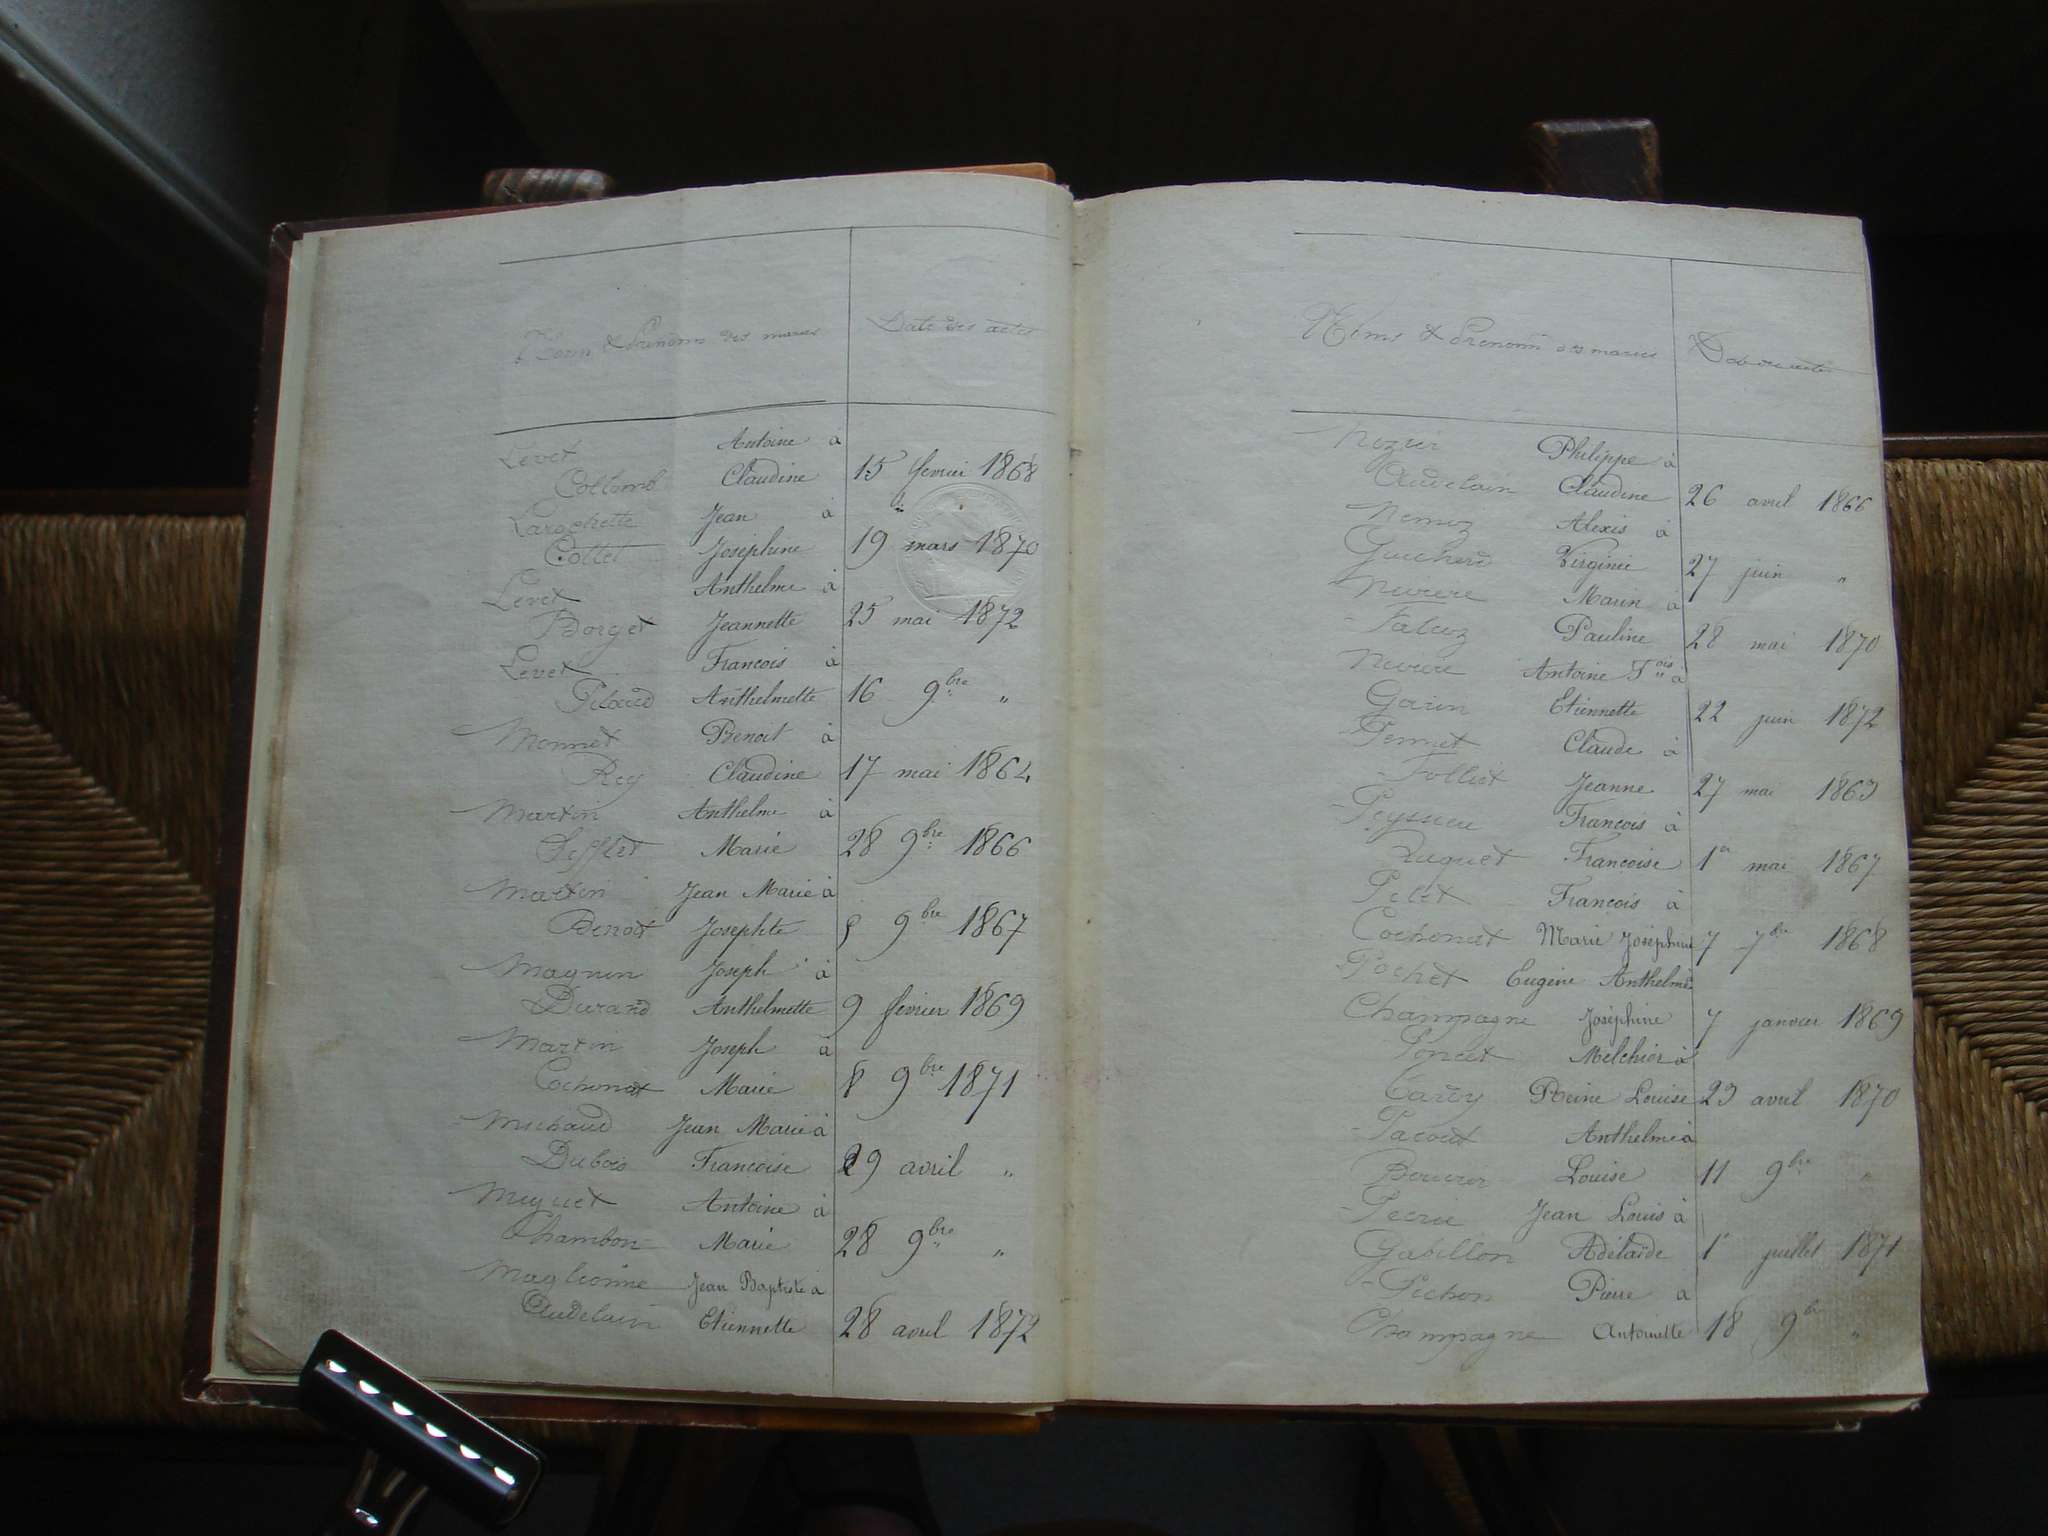 Noms & Prénoms des mariés Date des actes
Levet Antoine à
Collomb Claudine 15 fevrier 1868
Larochette Jean à "
Collet Joséphine 19 mars 1870
Levet Anthelme à
Borget Jeannette 25 mai 1872
Levet François à
Pilaud Anthelmette 16 9bre "
Monnet Benoit à
Rey Claudine 17 mai 1864
Martin Anthelme à
Marie 28 9bre 1866
Martin Jean Marie à
Benoit Josephte 9bre 1867
Magnin Joseph à
Durand Anthelmette 9 février 1869
Martin Joseph à
Cochonat Marie 8 9bre 1871
Michaud Jean Marie à
Dubois Francoise 29 avril "
Miguet Antoine à
Chambon Marie 28 9bre "
Jean Baptiste à
Audelain Etiennette 28 avril 1872
Noms & Prenoms des mariés Date des actes
Nozier Philippe à
Audelain Claudine 26 avril 1866
Nemoz Alexis à
Guichard Virginie 27 juin "
Marin à
Falcoz Pauline 28 mai 1870
Antoine Fois à
Garin Etiennette 22 juin 1872
Pernet Claude à
Folliet Jeanne 27 mai 1863
Peysieu François à
Ruguet Françoise 1er mai 1867
Pelet François à
Cochonat Marie Joséphine 7 7bre 1868
Pochet Eugène Anthelme à
Champagne Joséphine 7 janvier 1869
Poncet Melchior à
Carry Reine Louise 23 avril 1870
Pacout Anthelme à
Bouvier Louise 11 9bre "
Jean Louis à
Gabillon Adélaïde 1er juillet 1871
Pichon Pierre à
Champagne Antoinette 18 9b "